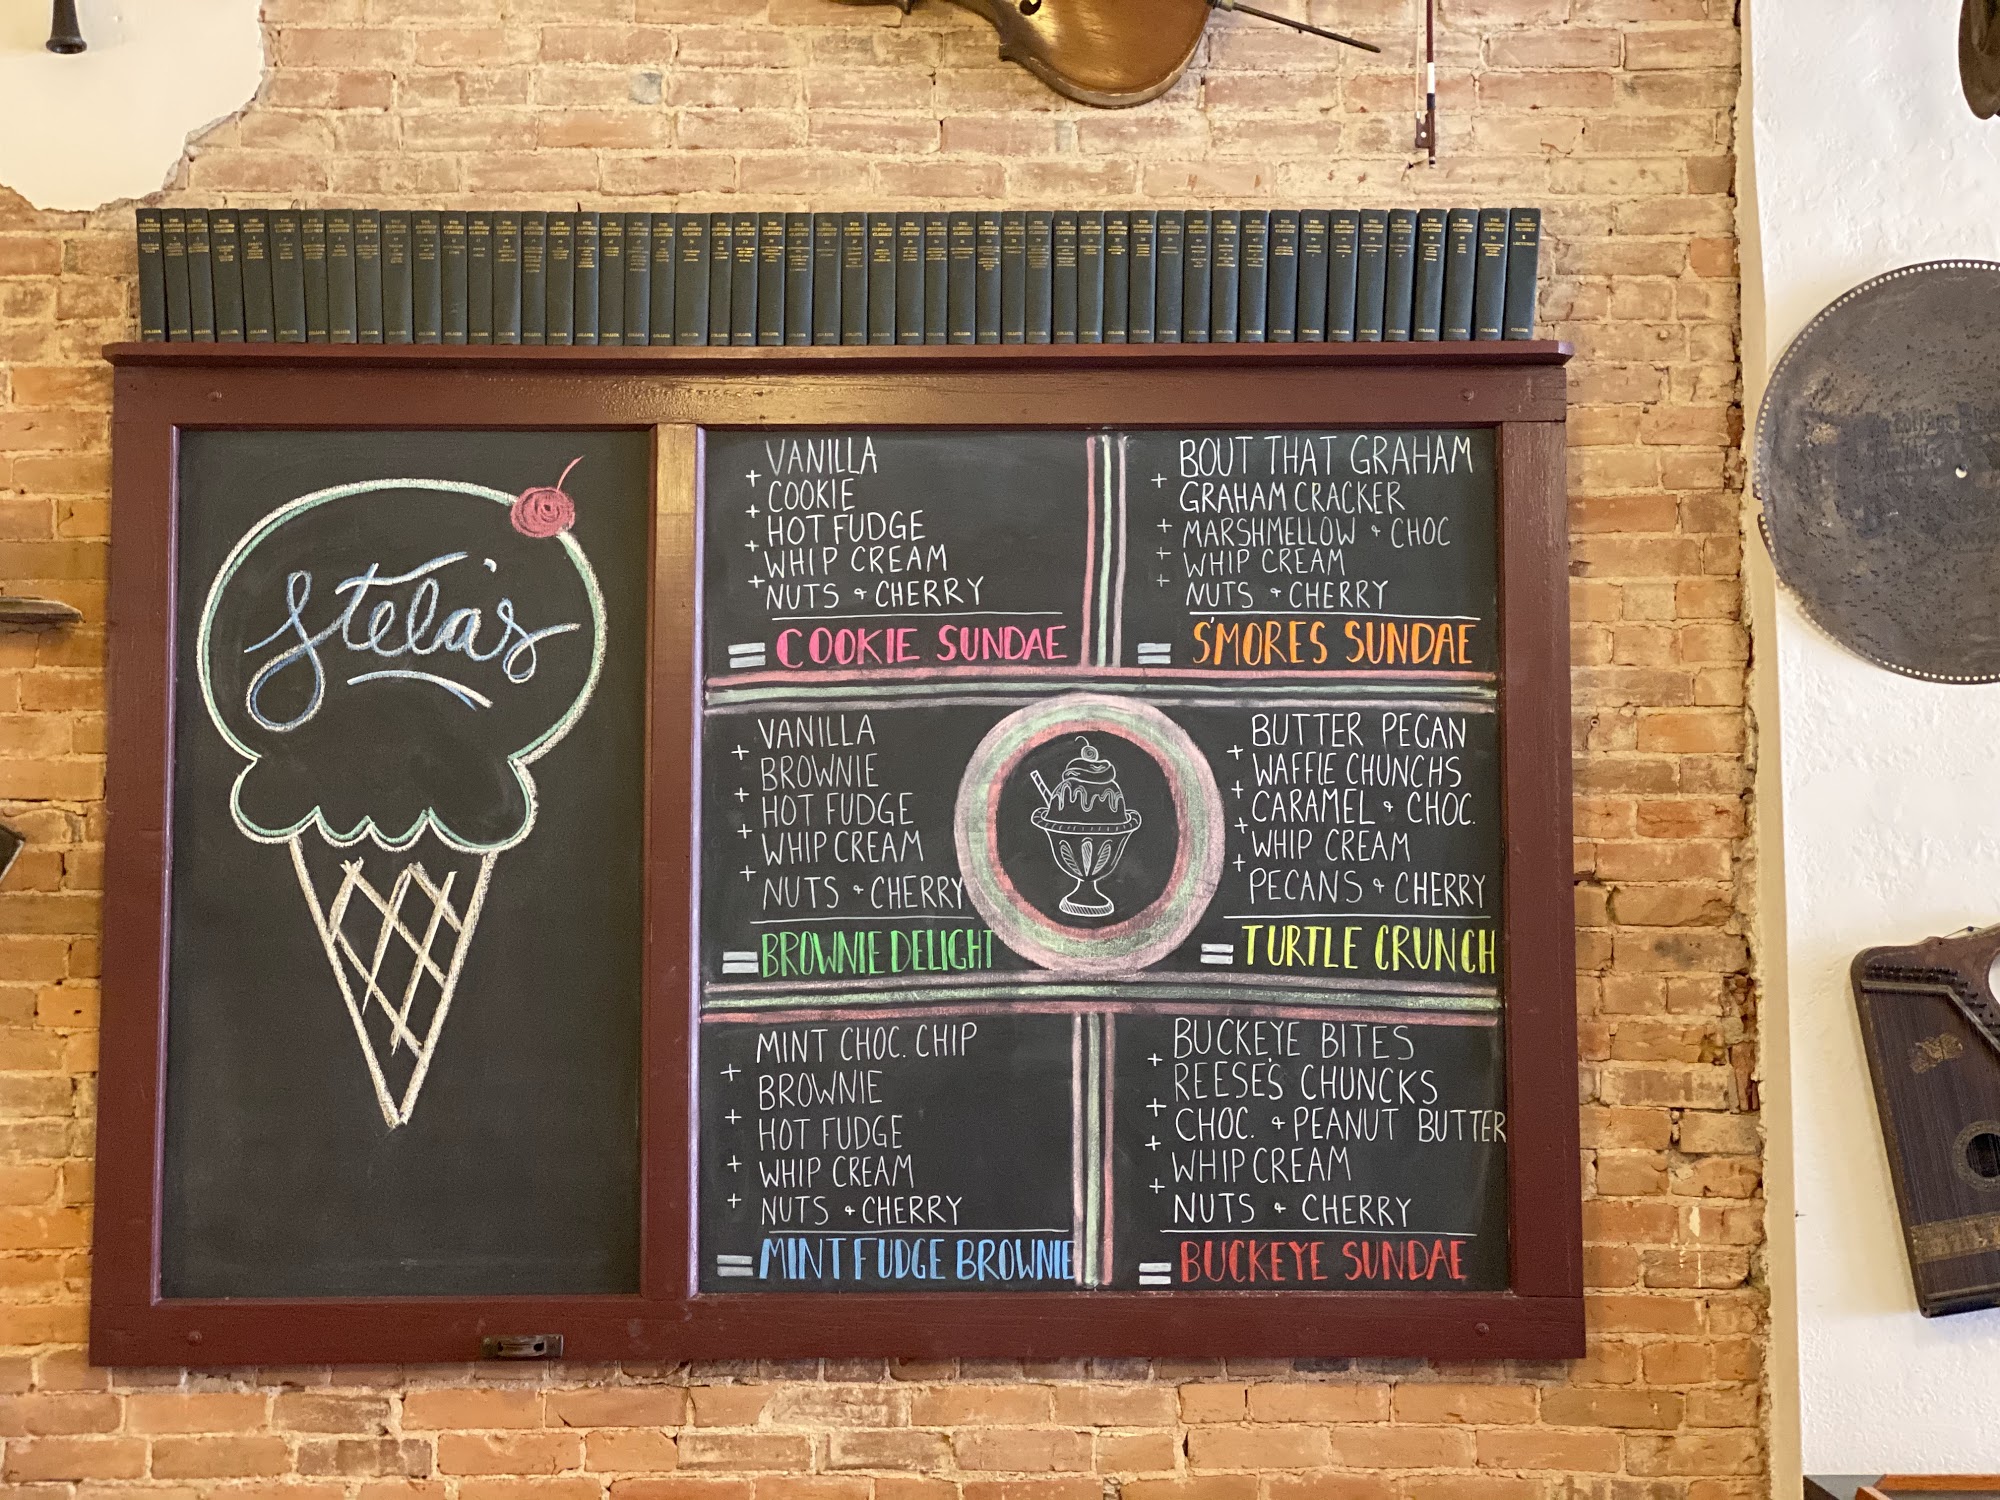 THE HARVARD CLASSICS
COLLIER
Stela's
VANILLA
+ COOKIE
+ HOT FUDGE
+ WHIP CREAM
+ NUTS + CHERRY
= COOKIE SUNDAE
BOUT THAT GRAHAM
+ GRAHAM CRACKER
+ MARSHMELLOW + CHOC
+ WHIP CREAM
+ NUTS + CHERRY
= S'MORES SUNDAE
VANILLA
+ BROWNIE
+ HOT FUDGE
+ WHIP CREAM
+ NUTS + CHERRY
= BROWNIE DELIGHT
BUTTER PECAN
+ WAFFLE CHUNCHS
+ CARAMEL + CHOC.
+ WHIP CREAM
+ PECANS + CHERRY
= TURTLE CRUNCH
MINT CHOC. CHIP
+ BROWNIE
+ HOT FUDGE
+ WHIP CREAM
+ NUTS + CHERRY
= MINT FUDGE BROWNIE
BUCKEYE BITES
+ REESE'S CHUNCKS
+ CHOC. + PEANUT BUTTER
+ WHIP CREAM
+ NUTS + CHERRY
= BUCKEYE SUNDAE